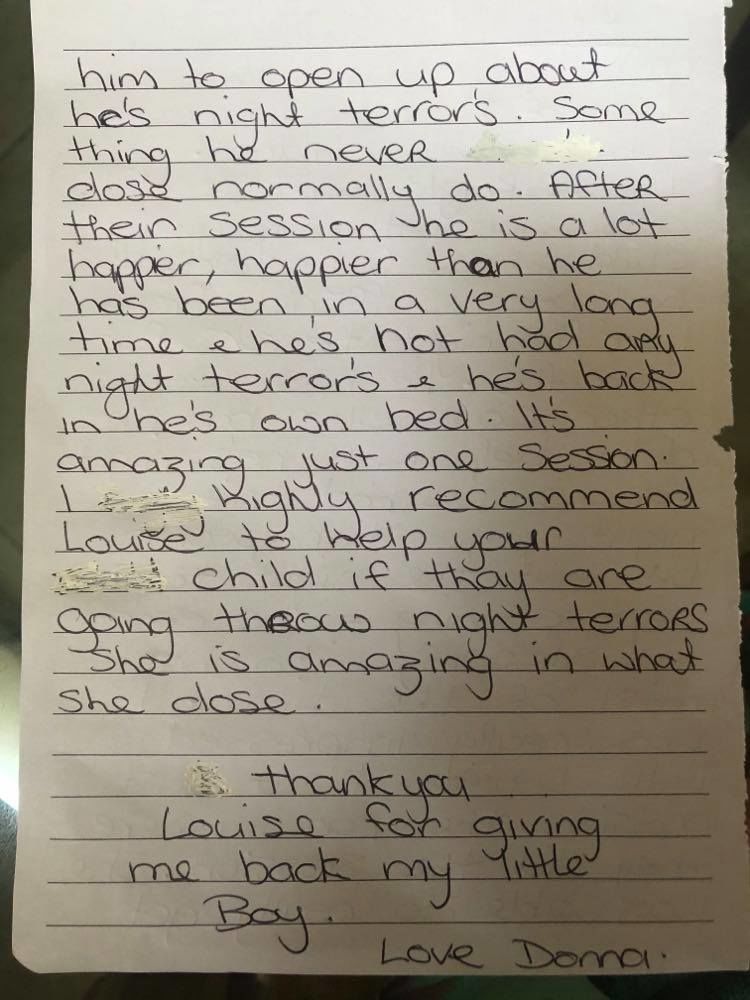 him to open up about
he's night terror's. Some
thing he never
dose normally do. After
their session he is a lot
happier, happier than he
has been in a very long
time & he's not had any
night terror's & he's back
in he's own bed. It's
amazing just one session.
I highly recommend
Louise to help your
child if thay are
going theouw night terrors
She is amazing in what
she dose.
thankyou
Louise for giving
me back my little
Boy.
Love Donna.